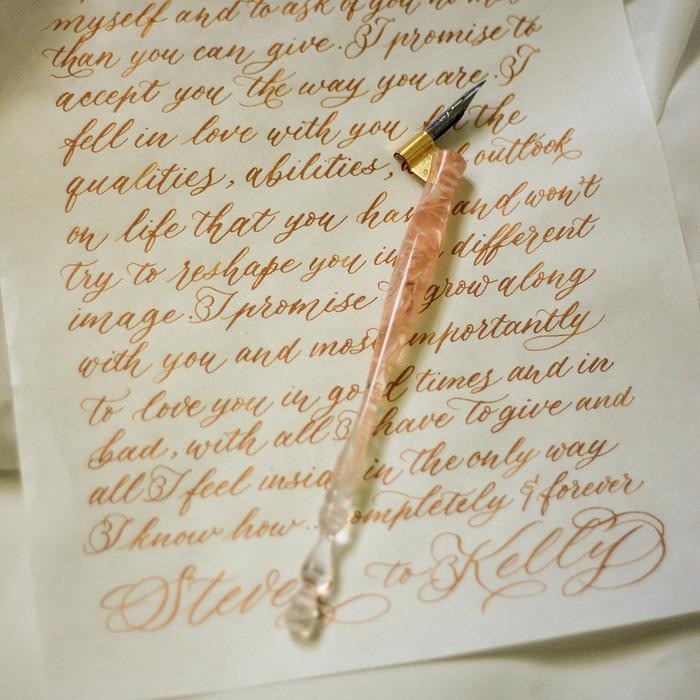 myself and to ask of you no more
than you can give. I promise to
accept you the way you are. I
fell in love with you for the
qualities, abilities, and outlook
on life that you have and won't
try to reshape you in a different
image. I promise to grow along
with you and most importantly
to love you in good times and in
bad, with all I have to give and
all I feel inside in the only way
I know how... completely & forever
Steve to Kelly